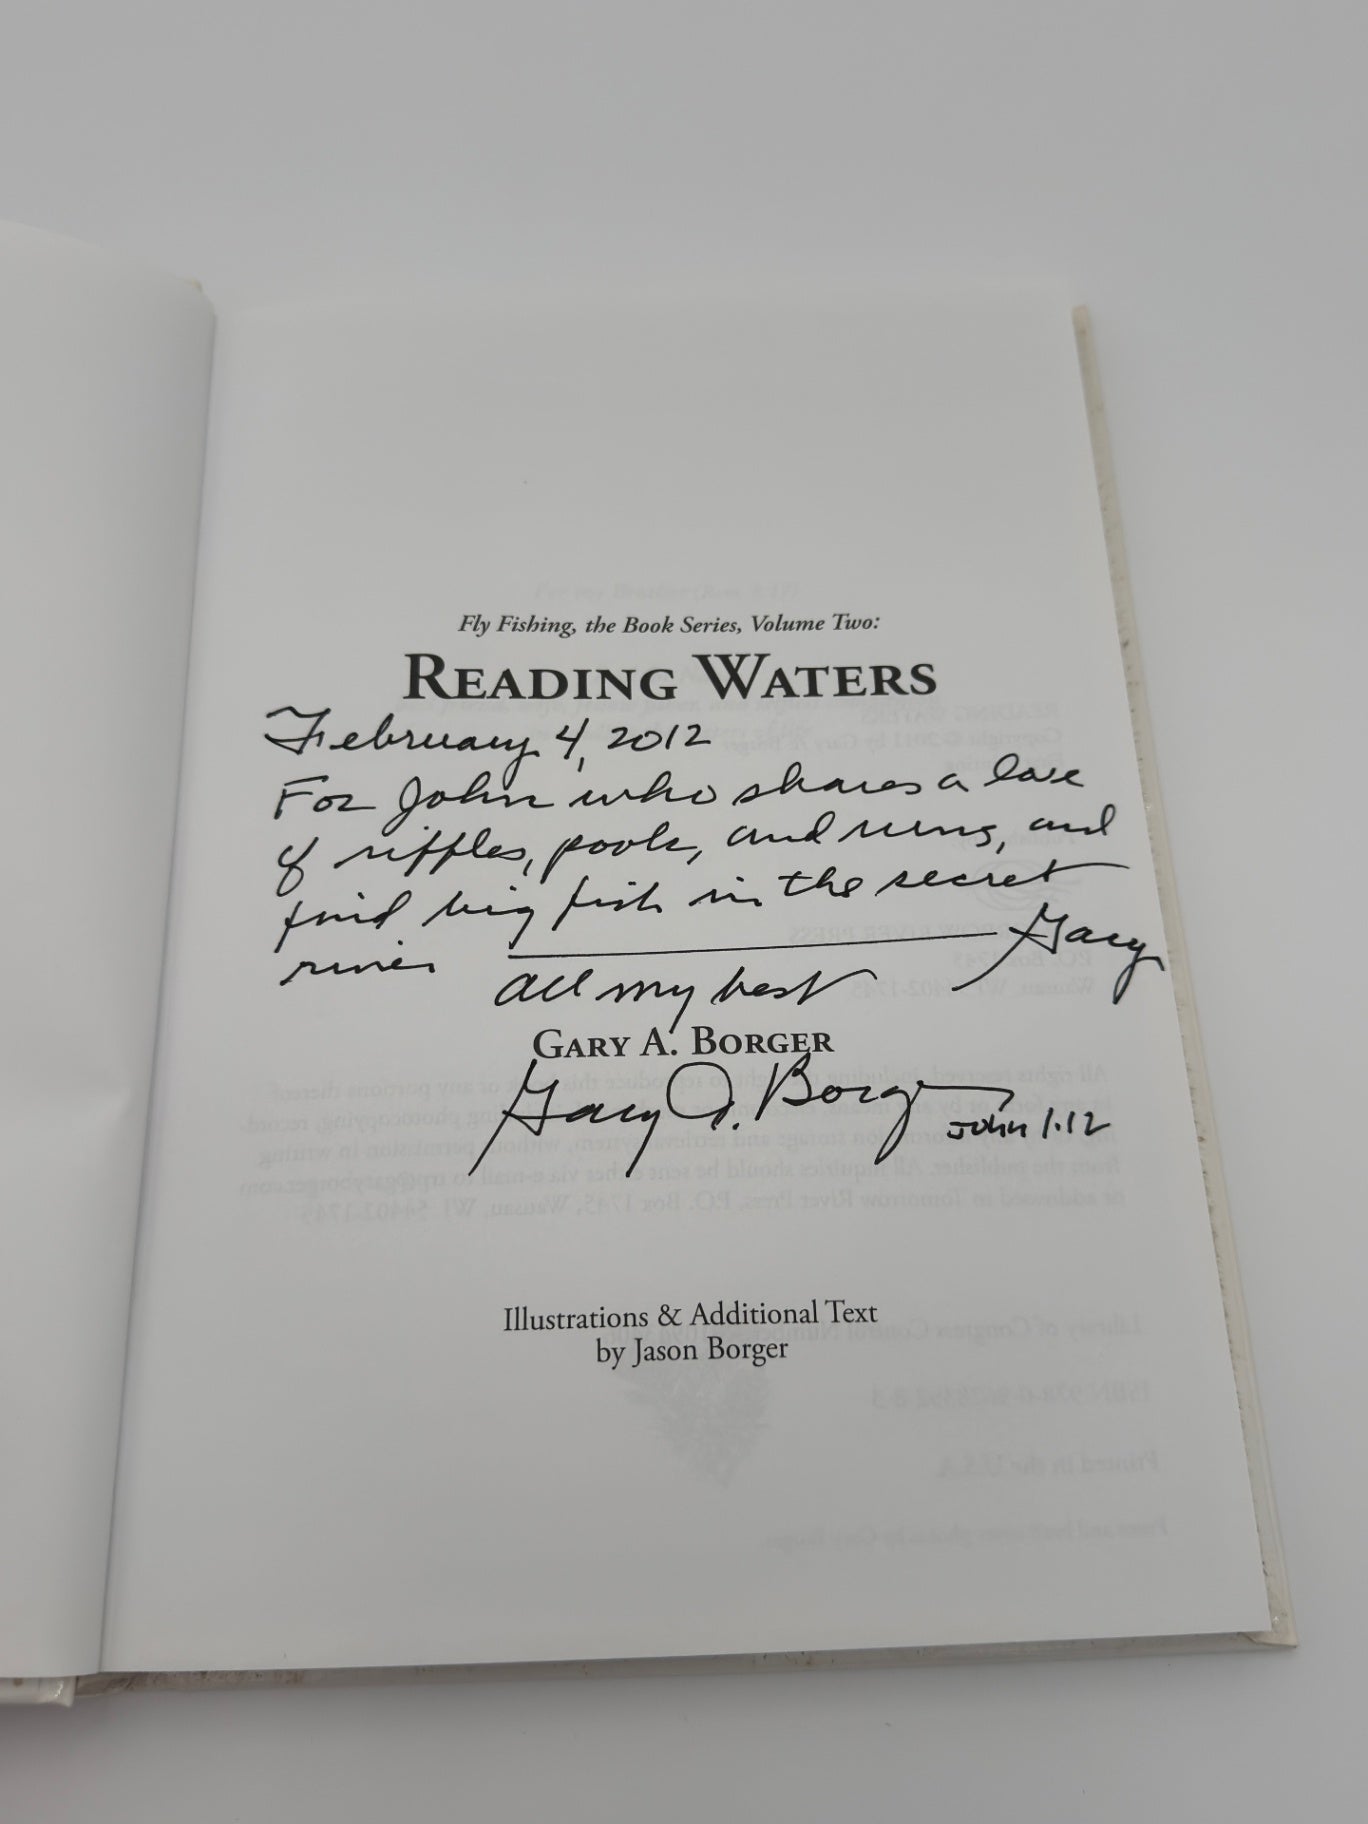 Fly Fishing, the Book Series, Volume Two:
READING WATERS
February 4, 2012
For John who shares a love
of riffles, pools, and runs, and
find big fish in the secret
river
Gary
all my best
GARY A. BORGER
Gary A. Borger
John 1:12
Illustrations & Additional Text
by Jason Borger